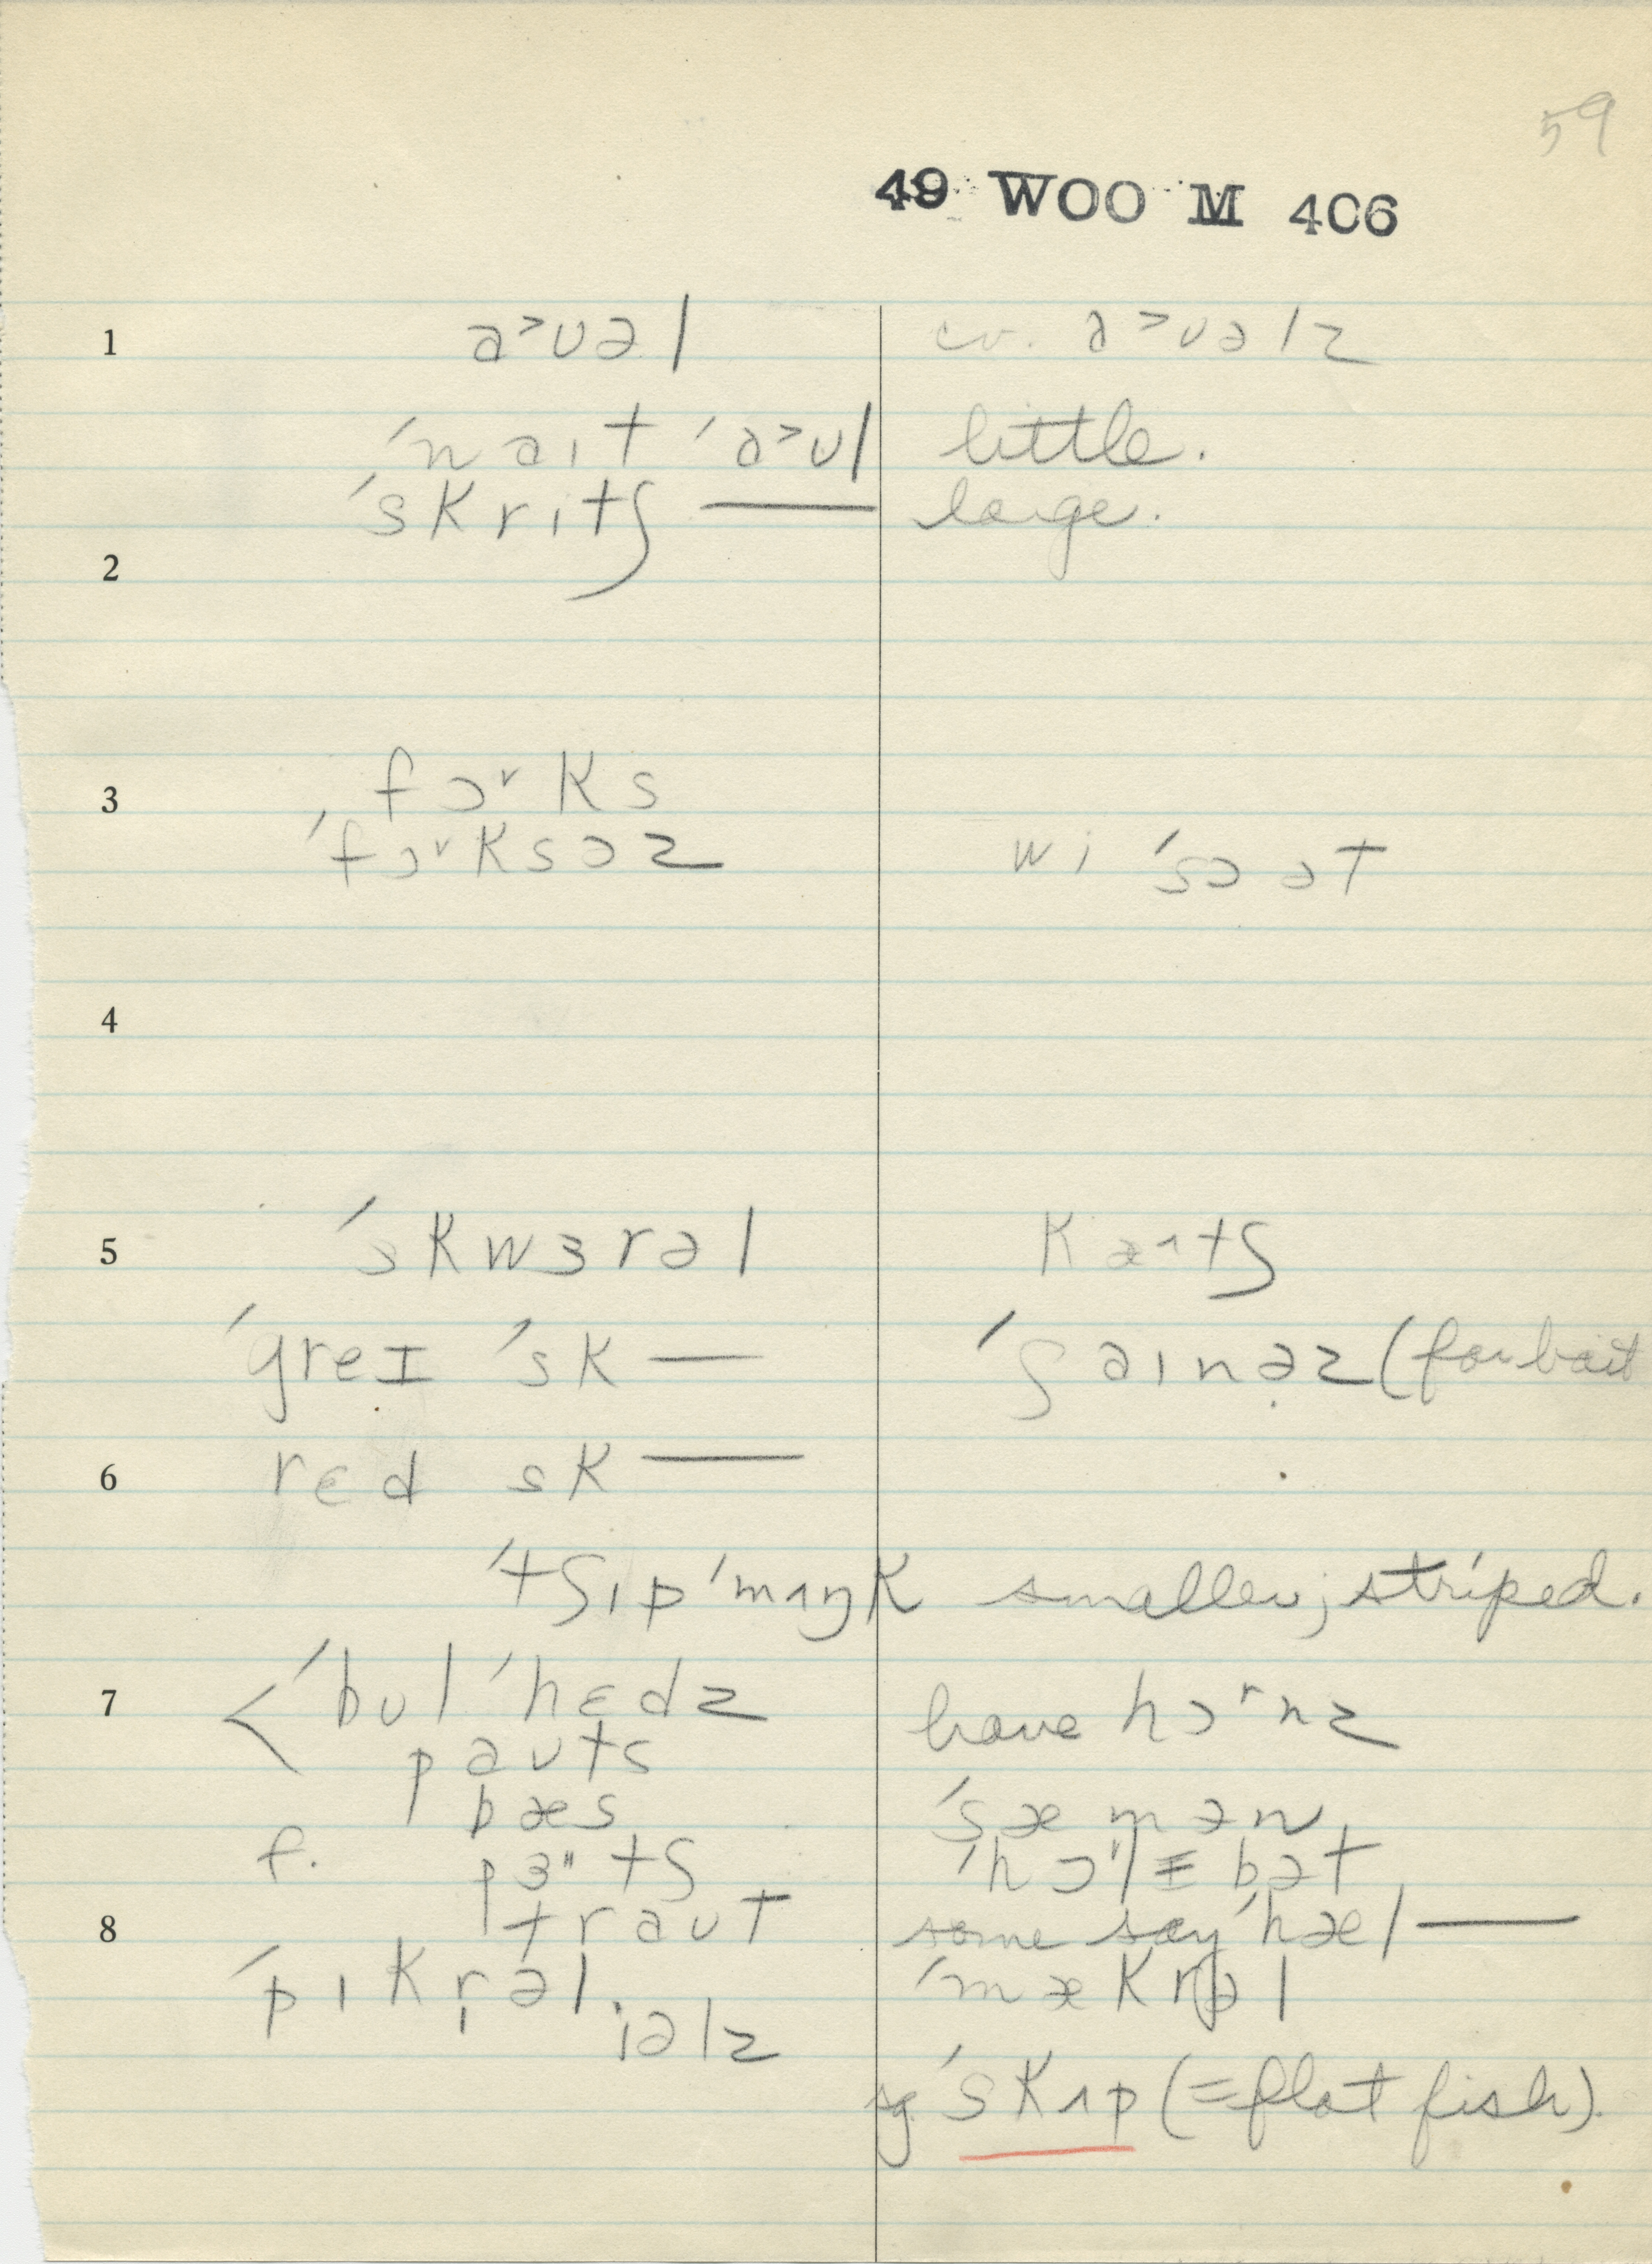 59
49 WOO M 406
1 a˃ʊəl cv. a˃ʊəlz
ˈnaɪt ˈa˃ʊl little.
ˈskritʃ — large.
2
3 fɔʳks
ˈfɔʳksəz wi ˈsɔ ət
4
5 ˈskwɜrəl kæʌtʃ
ˈgreɪ ˈsk — ˈʃaɪnəz (for bait
6 rɛd sk —
ˈtʃɪpˈmʌŋk smaller; striped.
7 ˈbʊlˈhɛdz have hɔʳnz
paʊts
bæs ˈsæmən
f. pɜ"tʃ ˈhɔ"lɪbət
8 traʊt some say ˈhæl —
ˈpɪkrəl ˈmækrəl
iəlz
sg ˈskʌp (=flat fish).